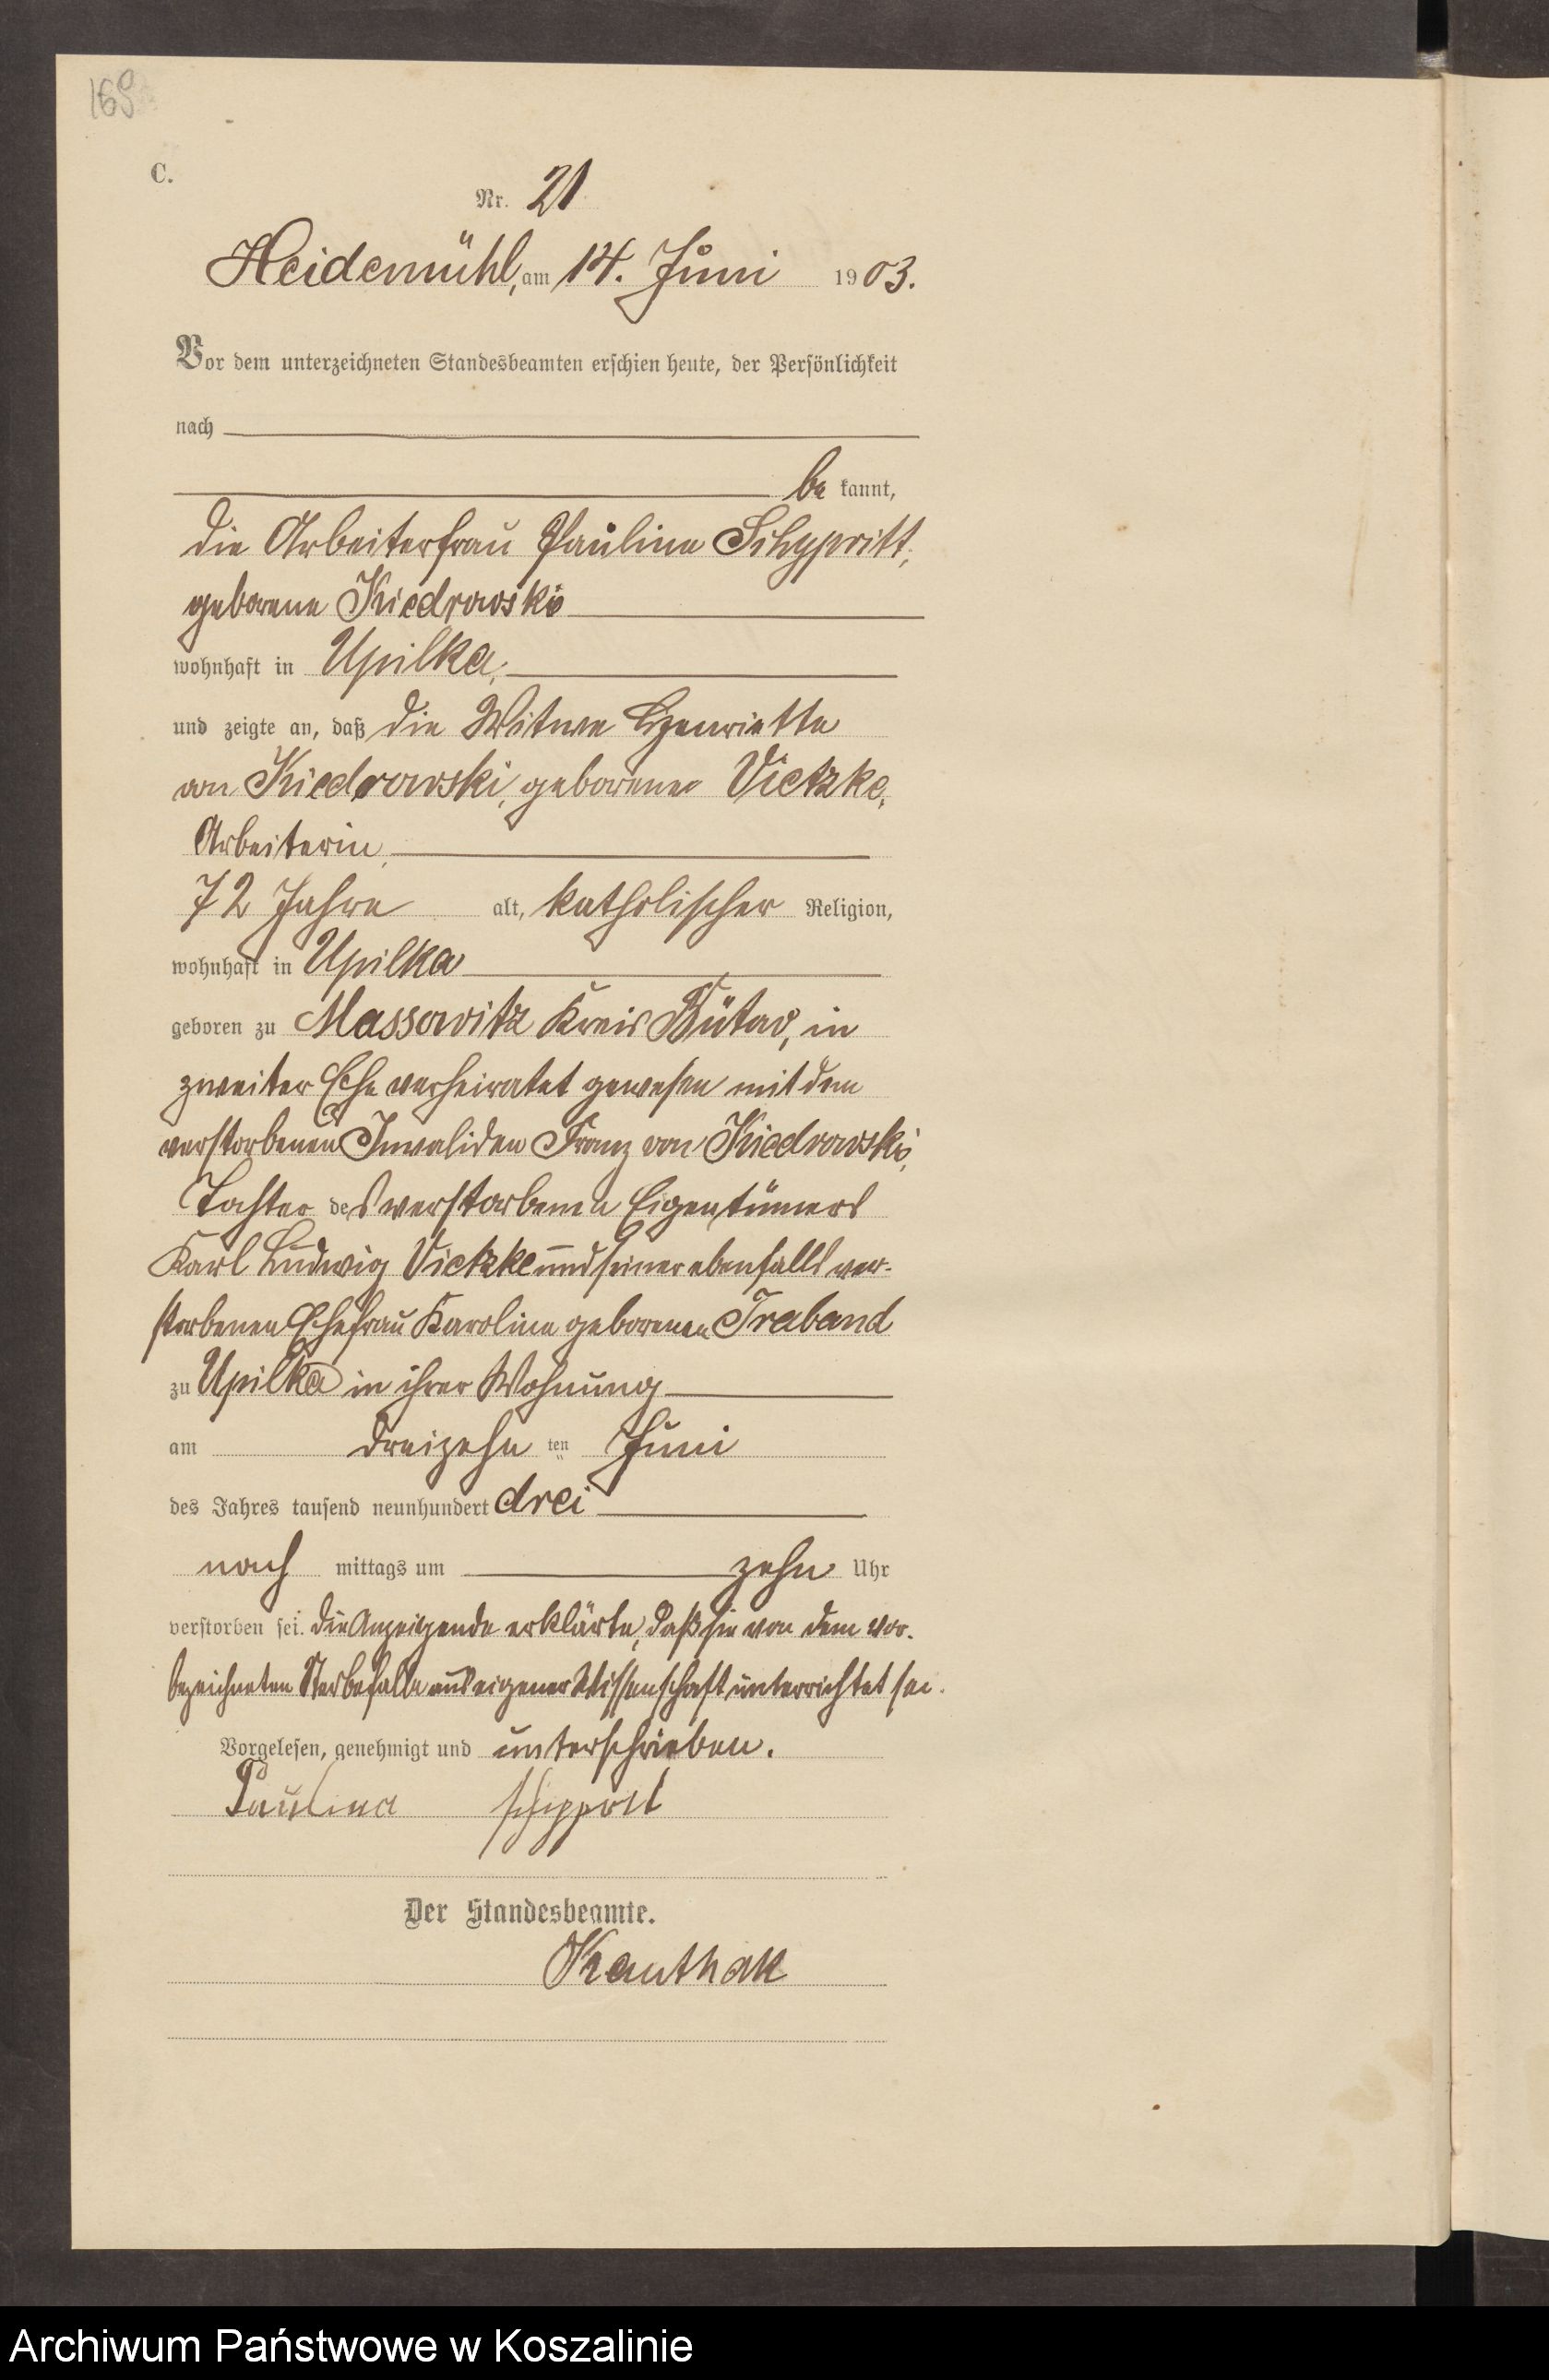 169
C.
Nr. 21
Heidemühl, am 14. Juni 1903.
Vor dem unterzeichneten Standesbeamten erschien heute, der Persönlichkeit
nach
be kannt,
die Arbeiterfrau Pauline Schyppritt,
geborene Kiedrowski
wohnhaft in Upilka,
und zeigte an, daß die Witwe Henriette
von Kiedrowski, geborene Vietzke,
Arbeiterin,
72 Jahre alt, katholischer Religion,
wohnhaft in Upilka
geboren zu Massowitz Kreis Bütow, in
zweiter Ehe verheiratet gewesen mit dem
verstorbenen Invaliden Franz von Kiedrowski,
Tochter des verstorbenen Eigentümers
Karl Ludwig Vietzke und seiner ebenfalls ver-
storbenen Ehefrau Karoline geborenen Traband
zu Upilka in ihrer Wohnung
am dreizehn ten Juni
des Jahres tausend neunhundert drei
nach mittags um zehn Uhr
verstorben sei. Die Anzeigende erklärte, daß sie von dem vor-
bezeichneten Sterbefalle aus eigener Wissenschaft unterrichtet sei.
Vorgelesen, genehmigt und unterschrieben.
Paulina
Der Standesbeamte.
Archiwum Państwowe w Koszalinie